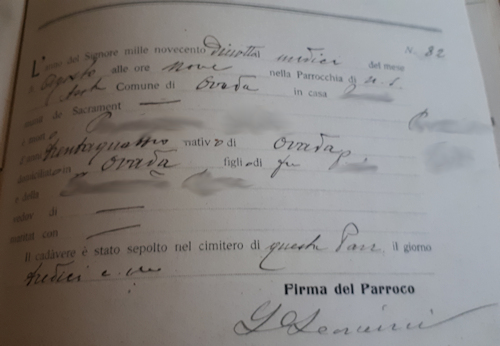 L'anno del Signore mille novecento Diciotto undici del mese N. 82
di Agosto alle ore nove nella Parrocchia di N. S.
Comune di Ovada in casa
munit de Sacrament
è mort
d'anni trentaquattro nativo di Ovada
domiciliato in Ovada figlio di fu
e della
vedov di
marit con
Il cadavere è stato sepolto nel cimitero di questa Parr. il giorno
tredici c. m.
Firma del Parroco